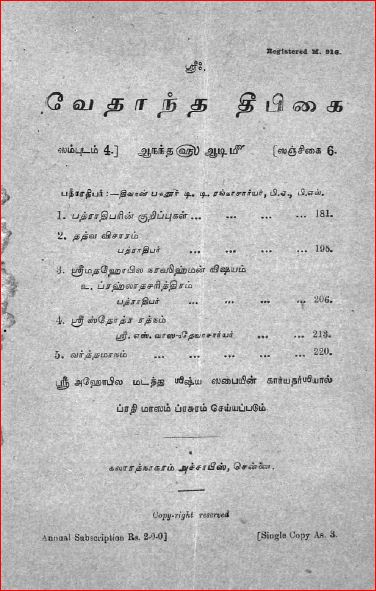 Registered M. 916.
ஸ்ரீ:.
வேதாந்த தீபிகை
ஸம்புடம் 4.] ஆநந்த ௵ ஆடி ௴ [ஸஞ்சிகை 6.
பத்ராதிபர்:—திவான் பஹதூர் டி. டி. ரங்காசார்யர், பி.ஏ., பி.எல்.
1. பத்ராதிபரின் குறிப்புகள் ... ... ... ... 181.
2. தத்வ விசாரம்
பத்ராதிபர் ... ... ... ... 195.
3. ஸ்ரீமதஹோபில விஷயம்
உ. ப்ரஹ்லாதசரித்திரம்
பத்ராதிபர் ... ... ... 206.
4. ஸ்ரீ ஸ்தோத்ர ரத்நம்
ஸ்ரீ. எஸ். வாஸுதேவாசார்யர் ... ... 213.
5. வர்த்தமாநம் ... ... ... ... 220.
ஸ்ரீ அஹோபில மடத்து ஶிஷ்ய ஸபையின் கார்யதர்ஶியால்
ப்ரதி மாஸம் ப்ரசுரம் செய்யப்படும்.
கலாரத்நாகரம் அச்சாபீஸ், சென்னை.
Copy-right reserved
Annual Subscription Rs. 2-0-0] [Single Copy As. 3.